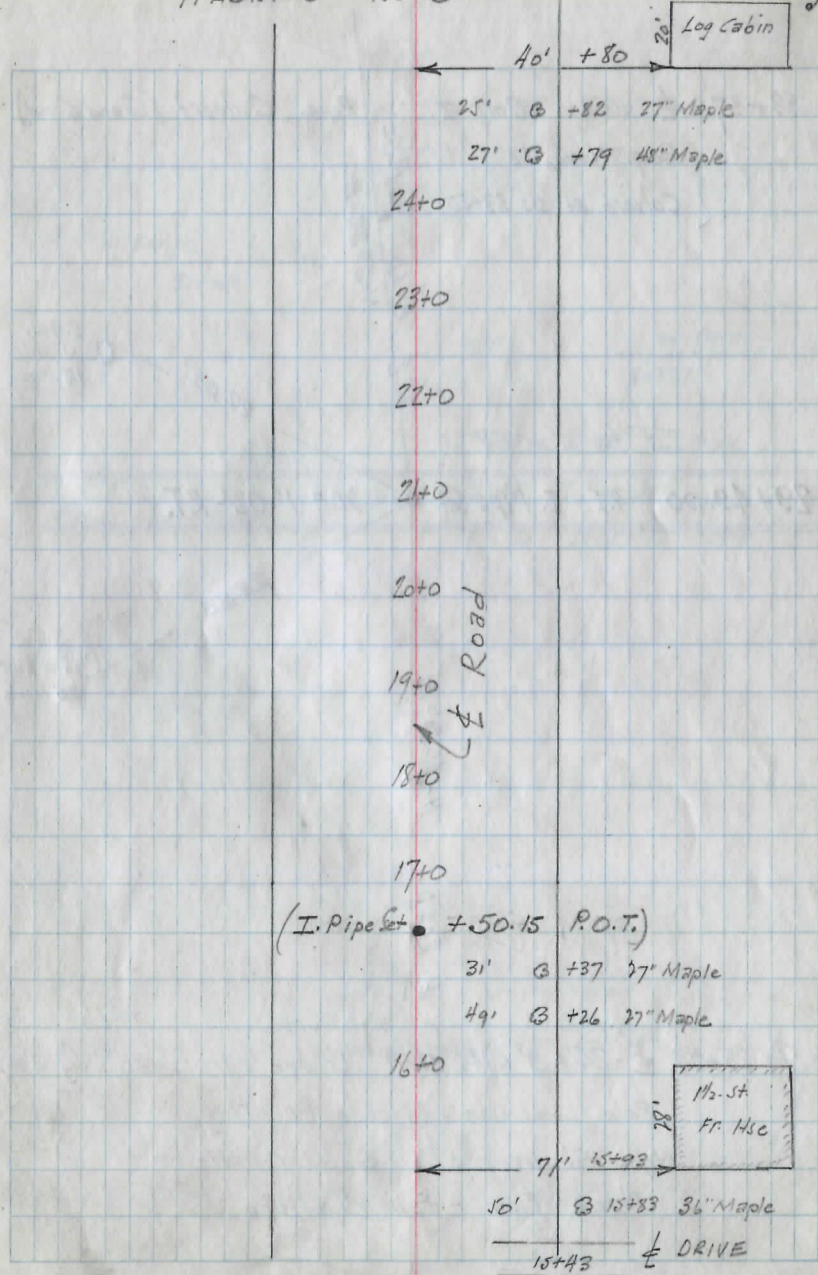 Log Cabin
20'
40' +80
25' +82 27" Maple
27' +79 48" Maple
24+0
23+0
22+0
21+0
20+0
19+0
℄ Road
18+0
17+0
(I. Pipe Set +50.15 P.O.T.)
31' +37 27" Maple
49' +26 27" Maple
16+0
1½-St.
Fr. Hse
28'
71' 15+93
50' 15+83 36" Maple
℄ DRIVE
15+43